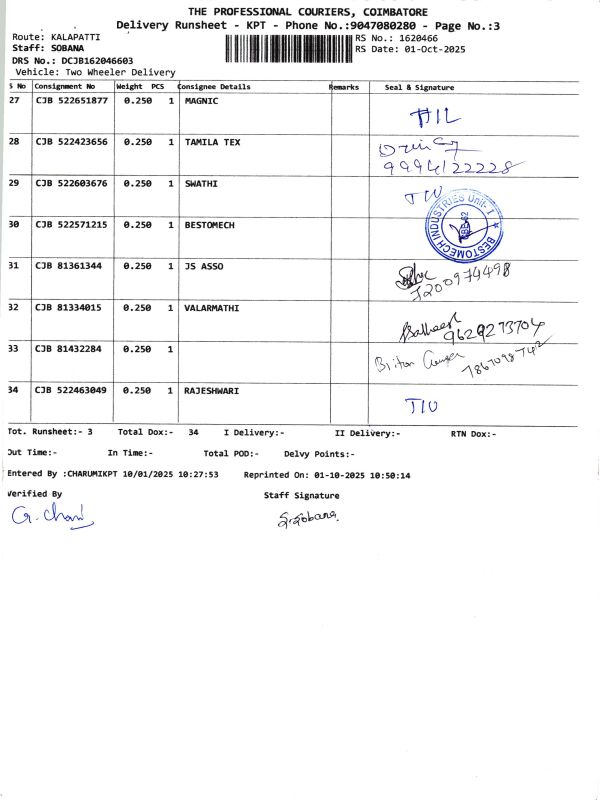 THE PROFESSIONAL COURIERS, COIMBATORE
Delivery Runsheet - KPT - Phone No.:9047080280 - Page No.:3
Route: KALAPATTI RS No.: 1620466
Staff: SOBANA RS Date: 01-Oct-2025
DRS No.: DCJB162046603
Vehicle: Two Wheeler Delivery
S No Consignment No Weight PCS Consignee Details Remarks Seal & Signature
27 CJB 522651877 0.250 1 MAGNIC
28 CJB 522423656 0.250 1 TAMILA TEX
9994122228
29 CJB 522603676 0.250 1 SWATHI
30 CJB 522571215 0.250 1 BESTOMECH BESTOMECH INDUSTRIES Unit-1
31 CJB 81361344 0.250 1 JS ASSO
7200974498
32 CJB 81334015 0.250 1 VALARMATHI
9629273704
33 CJB 81432284 0.250 1
34 CJB 522463049 0.250 1 RAJESHWARI
Tot. Runsheet:- 3 Total Dox:- 34 I Delivery:- II Delivery:- RTN Dox:-
Out Time:- In Time:- Total POD:- Delvy Points:-
Entered By :CHARUMIKPT 10/01/2025 10:27:53 Reprinted On: 01-10-2025 10:50:14
Verified By Staff Signature
S.Sobana